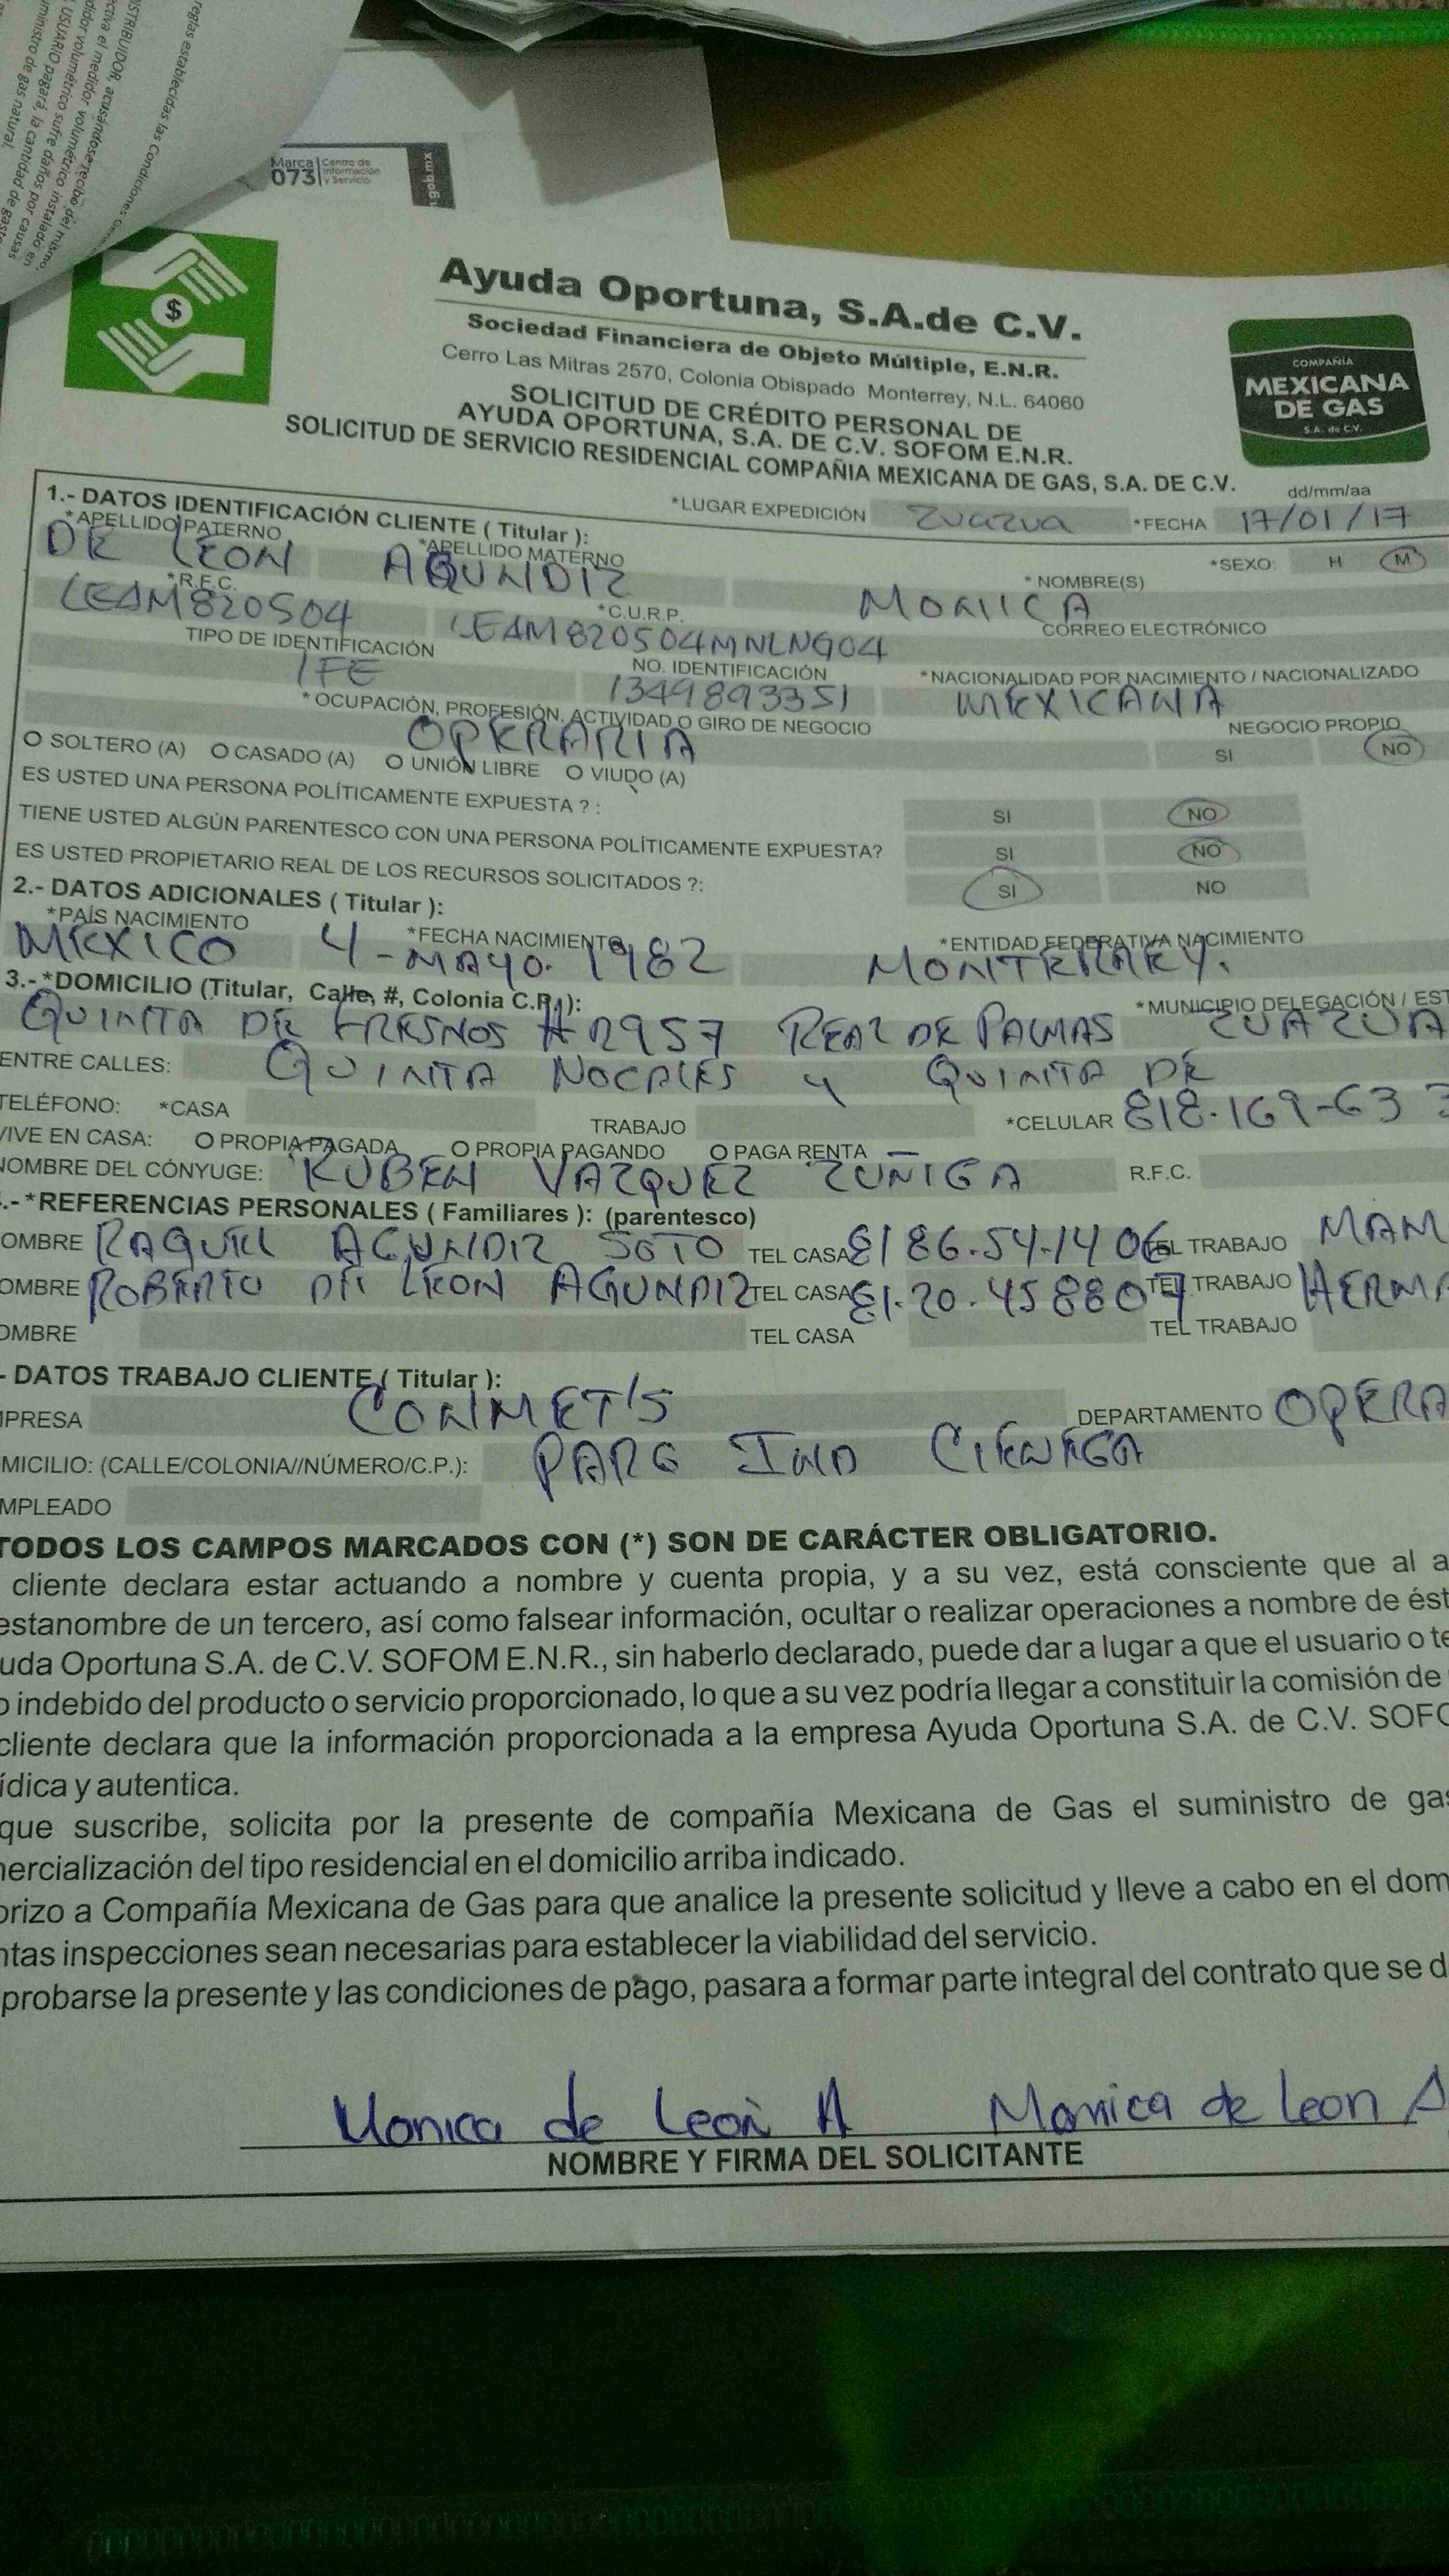 reglas establecidas las Condiciones
STRIBUIDOR, acusándose recibo del mismo,
ctiva el medidor volumétrico instalado, en
didor volumétrico sufre daños por causas
USUARIO pagará, la cantidad de gasto
uministro de gas natural.
Marca 073 Centro de Información y Servicio
gob.mx
$
Ayuda Oportuna, S.A.de C.V.
Sociedad Financiera de Objeto Múltiple, E.N.R.
Cerro Las Mitras 2570, Colonia Obispado Monterrey, N.L. 64060
SOLICITUD DE CRÉDITO PERSONAL DE
AYUDA OPORTUNA, S.A. DE C.V. SOFOM E.N.R.
SOLICITUD DE SERVICIO RESIDENCIAL COMPAÑIA MEXICANA DE GAS, S.A. DE C.V.
COMPAÑÍA
MEXICANA
DE GAS
S.A. de C.V.
dd/mm/aa
*LUGAR EXPEDICIÓN ZUAZUA *FECHA 17/01/17
1.- DATOS IDENTIFICACIÓN CLIENTE ( Titular ):
*APELLIDO PATERNO *APELLIDO MATERNO *NOMBRE(S) *SEXO: H M
DE LEON AGUNDIZ MONICA
*R.F.C. *C.U.R.P. CORREO ELECTRÓNICO
LEAM820504 LEAM820504MNLNG04
TIPO DE IDENTIFICACIÓN NO. IDENTIFICACIÓN *NACIONALIDAD POR NACIMIENTO / NACIONALIZADO
IFE 1349893351 MEXICANA
* OCUPACIÓN, PROFESIÓN, ACTIVIDAD O GIRO DE NEGOCIO NEGOCIO PROPIO
OPERARIA SI NO
O SOLTERO (A) O CASADO (A) O UNIÓN LIBRE O VIUDO (A)
ES USTED UNA PERSONA POLÍTICAMENTE EXPUESTA ? : SI NO
TIENE USTED ALGÚN PARENTESCO CON UNA PERSONA POLÍTICAMENTE EXPUESTA? SI NO
ES USTED PROPIETARIO REAL DE LOS RECURSOS SOLICITADOS ?: SI NO
2.- DATOS ADICIONALES ( Titular ):
*PAÍS NACIMIENTO *FECHA NACIMIENTO *ENTIDAD FEDERATIVA NACIMIENTO
MEXICO 4-MAYO. 1982 MONTERREY.
3.- *DOMICILIO (Titular, Calle, #, Colonia C.P.): *MUNICIPIO DELEGACIÓN / EST
QUINTA DE FRESNOS #2957 REAL DE PALMAS ZUAZUA
ENTRE CALLES: QUINTA NOGALES y QUINTA DE
TELÉFONO: *CASA TRABAJO *CELULAR 818-169-63 3
VIVE EN CASA: O PROPIA PAGADA O PROPIA PAGANDO O PAGA RENTA
NOMBRE DEL CÓNYUGE: RUBEN VAZQUEZ ZUÑIGA R.F.C.
.- *REFERENCIAS PERSONALES ( Familiares ): (parentesco)
OMBRE RAQUEL AGUNDIZ SOTO TEL CASA 81 86.54.14 06 TEL TRABAJO MAM
OMBRE ROBERTO DE LEON AGUNDIZ TEL CASA 81.20.45 8807 TEL TRABAJO HERMA
OMBRE TEL CASA TEL TRABAJO
- DATOS TRABAJO CLIENTE ( Titular ):
MPRESA CONMET'S DEPARTAMENTO OPERA
MICILIO: (CALLE/COLONIA//NÚMERO/C.P.): PARQ IND CIENEGA
MPLEADO
TODOS LOS CAMPOS MARCADOS CON (*) SON DE CARÁCTER OBLIGATORIO.
cliente declara estar actuando a nombre y cuenta propia, y a su vez, está consciente que al a
estanombre de un tercero, así como falsear información, ocultar o realizar operaciones a nombre de ést
uda Oportuna S.A. de C.V. SOFOM E.N.R., sin haberlo declarado, puede dar a lugar a que el usuario o te
o indebido del producto o servicio proporcionado, lo que a su vez podría llegar a constituir la comisión de
cliente declara que la información proporcionada a la empresa Ayuda Oportuna S.A. de C.V. SOFO
ídica y autentica.
que suscribe, solicita por la presente de compañía Mexicana de Gas el suministro de gas
mercialización del tipo residencial en el domicilio arriba indicado.
orizo a Compañía Mexicana de Gas para que analice la presente solicitud y lleve a cabo en el dom
ntas inspecciones sean necesarias para establecer la viabilidad del servicio.
probarse la presente y las condiciones de pago, pasara a formar parte integral del contrato que se d
Monica de Leon A Monica de Leon A
NOMBRE Y FIRMA DEL SOLICITANTE